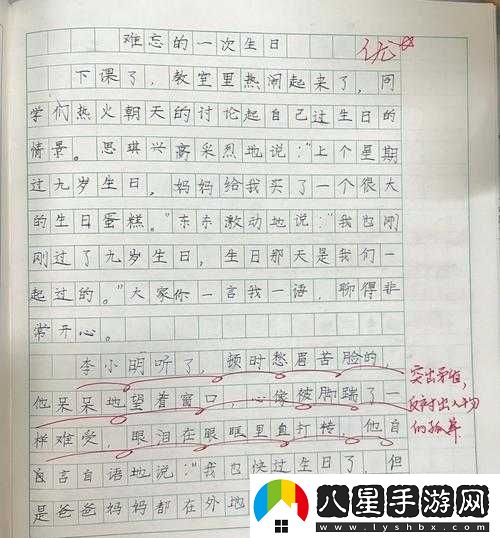 难忘的一次生日
优
下课了，教室里热闹起来了，同
学们热火朝天的讨论起自己过生日的
情景。思琪兴高采烈地说："上个星期
过九岁生日，妈妈给我买了一个很大
的生日蛋糕。"东东激动地说："我也刚
刚过了九岁生日，生日那天是我们一
起过的。"大家你一言我一语，聊得非
常开心。
李小明听了，顿时愁眉苦脸的，
他呆呆地望着窗口，心像被脚踹了一
样难受，眼泪在眼眶里直打转，他自
言自语地说："我也快过生日了，但
是爸爸妈妈都在外地
突出矛盾，
反衬出人物
的孤单
八星手游网
www.lyshbx.com